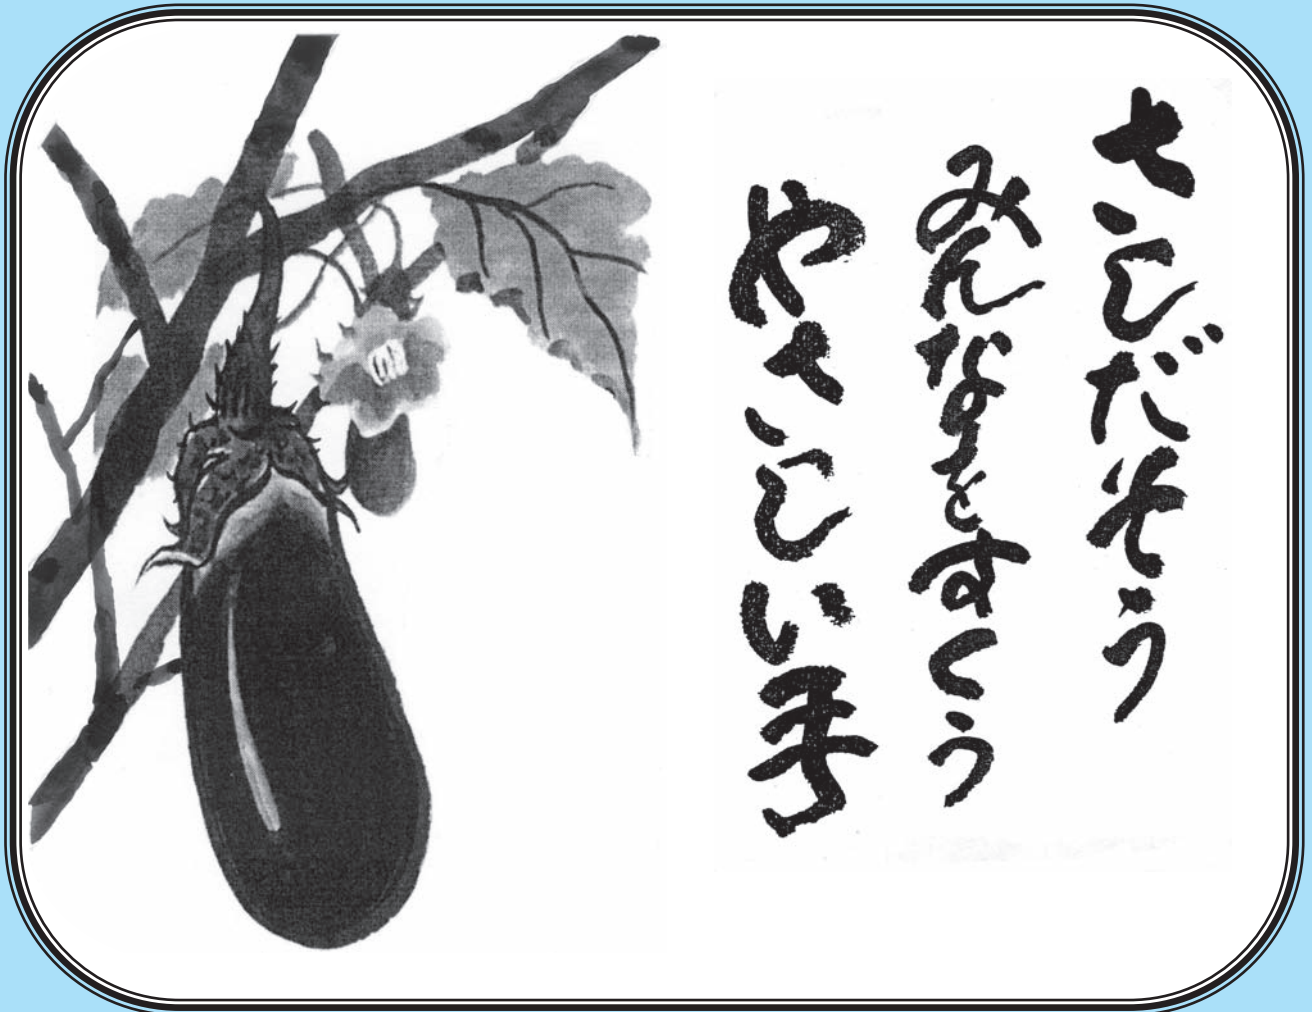 さしだそう
みんなをすくう
やさしい手